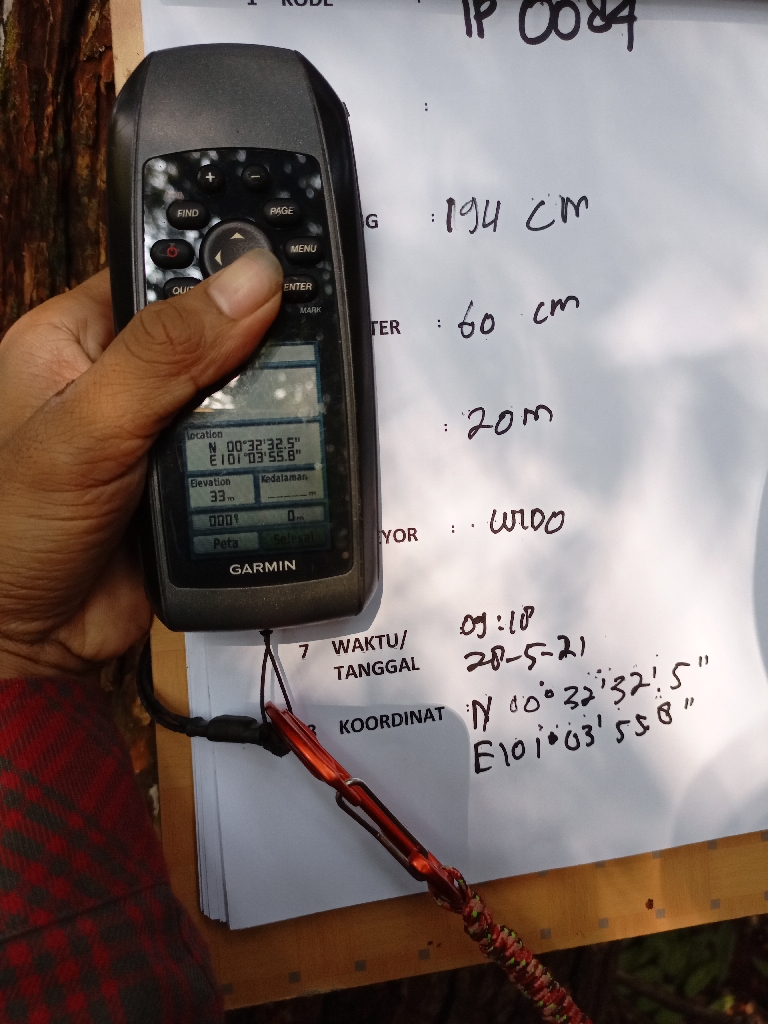 1 KODE :
IP 0084
:
G : 194 cm
TER : 60 cm
: 20 m
YOR : WIDO
7 WAKTU/
TANGGAL
09:18
28-5-21
8 KOORDINAT : N 00° 32' 32.5"
E101° 03' 55.8"
+ −
FIND PAGE
MENU
QUIT ENTER
MARK
location
N 00°32'32.5"
E101°03'55.8"
Elevation Kedalaman
33m _____m
0m
Peta Selesai
GARMIN